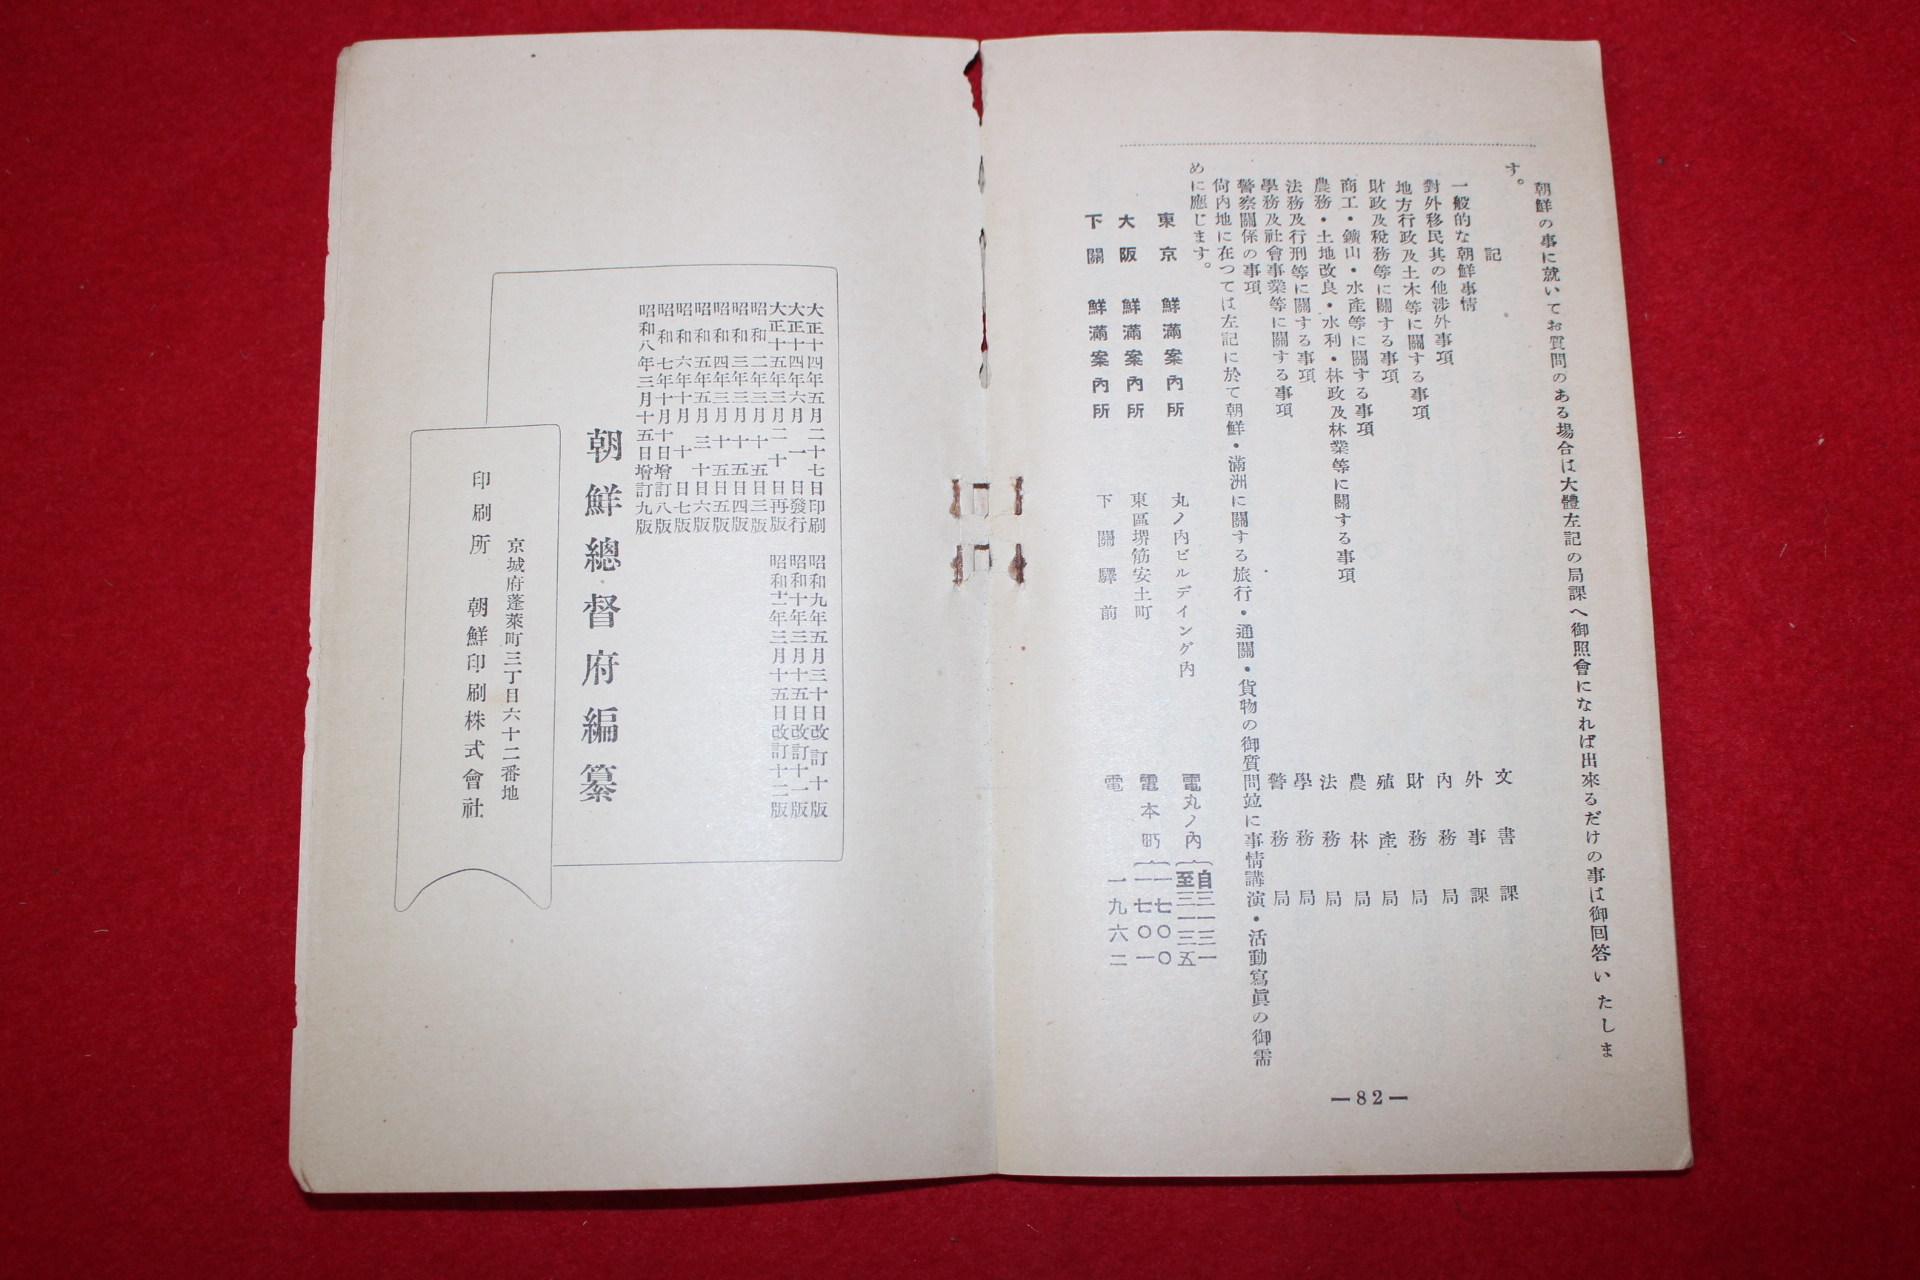 朝鮮の事に就いてお質問のある場合は大體左記の局課へ御照會になれば出來るだけの事は御回答いたしま
す。
記
一般的な朝鮮事情 文書課
對外移民其の他渉外事項 外事課
地方行政及土木等に關する事項 內務局
財政及稅務等に關する事項 財務局
商工・鑛山・水產等に關する事項 殖產局
農務・土地改良・水利・林政及林業等に關する事項 農林局
法務及行刑等に關する事項 法務局
學務及社會事業等に關する事項 學務局
警察關係の事項 警務局
尙內地に在つては左記に於て朝鮮・滿洲に關する旅行・通關・貨物の御質問竝に事情講演・活動寫眞の御需
めに應じます。
東京 鮮滿案內所 丸ノ內ビルデイング內 電丸ノ內 自三一三一 至三一三五
大阪 鮮滿案內所 東區堺筋安土町 電本町 一七〇〇 一七〇一
下關 鮮滿案內所 下關驛前 電 一九六二
—82—
大正十四年五月二十七日印刷
大正十四年六月一日發行
大正十五年三月二十日再版
昭和二年三月十五日三版
昭和三年三月十五日四版
昭和四年三月十五日五版
昭和五年五月三十日六版
昭和六年十月十日七版
昭和七年十月十日增訂八版
昭和八年三月十五日增訂九版
昭和九年五月三十日改訂十版
昭和十年三月十五日改訂十一版
昭和十二年三月十五日改訂十二版
朝鮮總督府編纂
京城府蓬萊町三丁目六十二番地
印刷所 朝鮮印刷株式會社